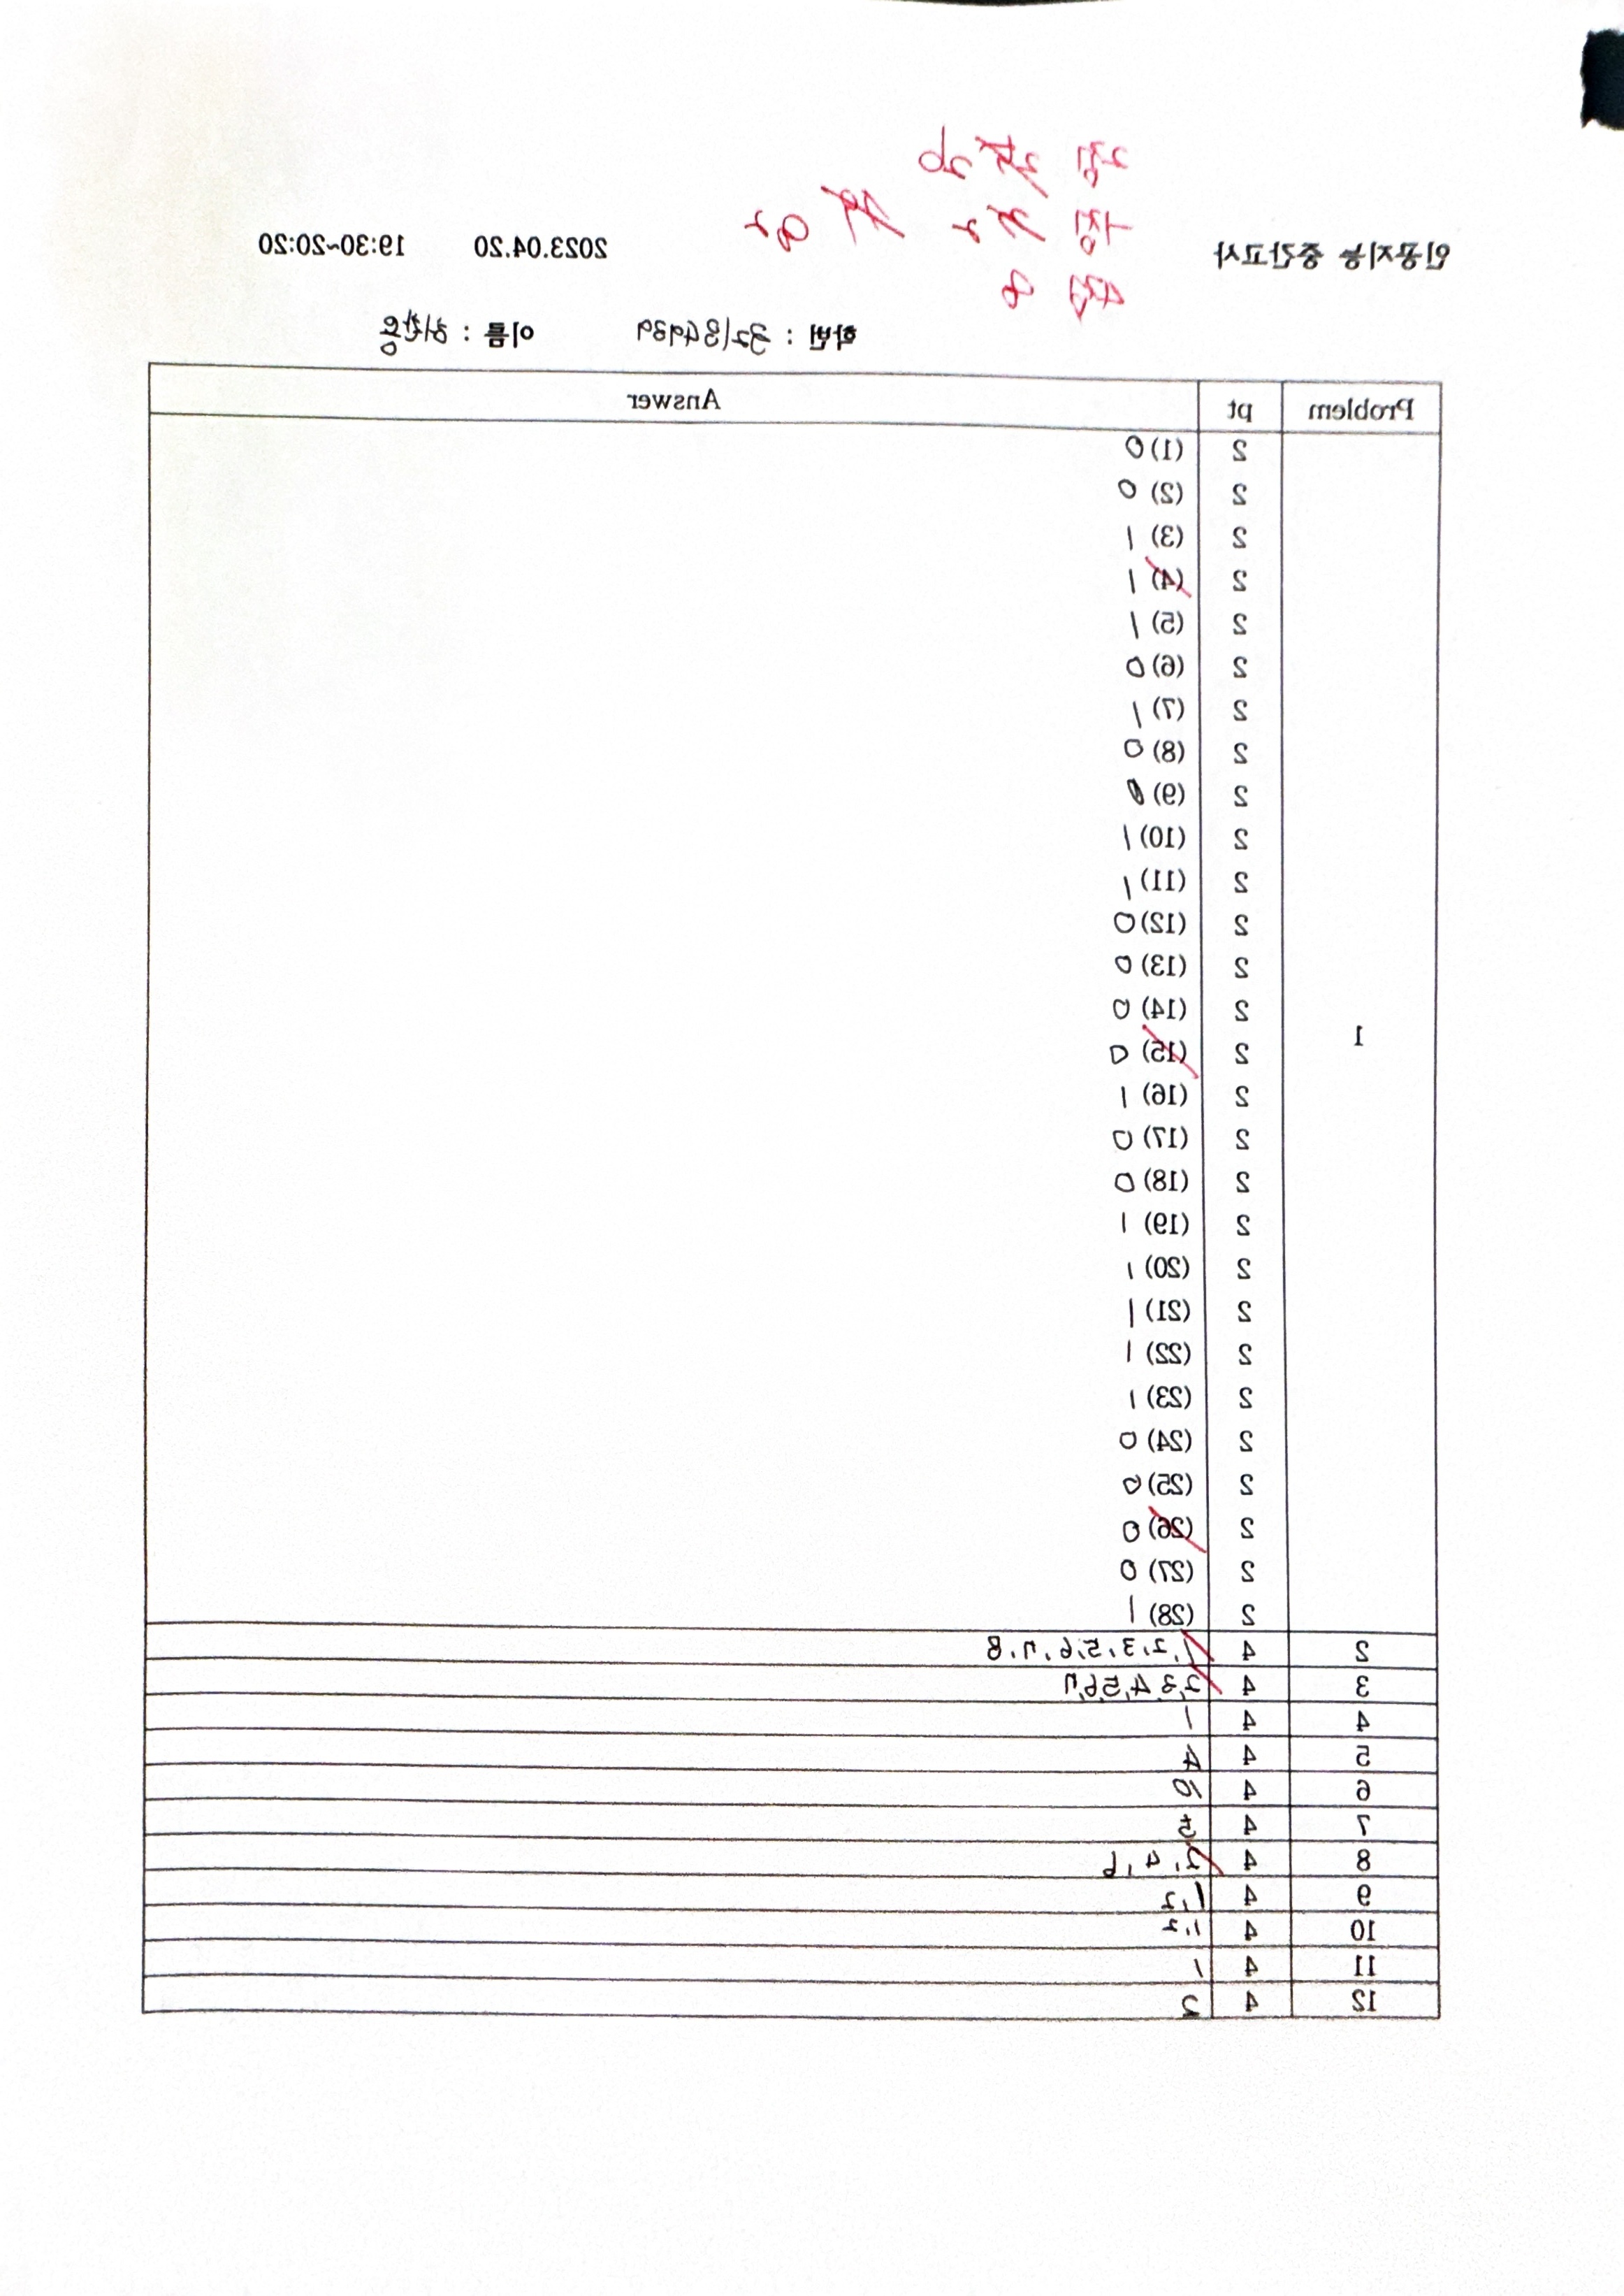 인공지능 중간고사 2023.04.20 19:30~20:20
학번 : 32184939 이름 :
Problem pt Answer
1
2 (1) 0
2 (2) 0
2 (3) 1
2 (4) 1
2 (5) 1
2 (6) 0
2 (7) 1
2 (8) 0
2 (9)
2 (10) 1
2 (11) 1
2 (12) 0
2 (13) 0
2 (14) 0
2 (15) 0
2 (16) 1
2 (17) 0
2 (18) 0
2 (19) 1
2 (20) 1
2 (21) 1
2 (22) 1
2 (23) 1
2 (24) 0
2 (25) 0
2 (26) 0
2 (27) 0
2 (28) 1
2 4 1, 2, 3, 5, 6, 7, 8
3 4 2, 3, 4, 5, 6, 7
4 4 1
5 4 4
6 4 10
7 4 5
8 4 2, 4, 6
9 4 1, 2
10 4 1, 2
11 4 1
12 4 2